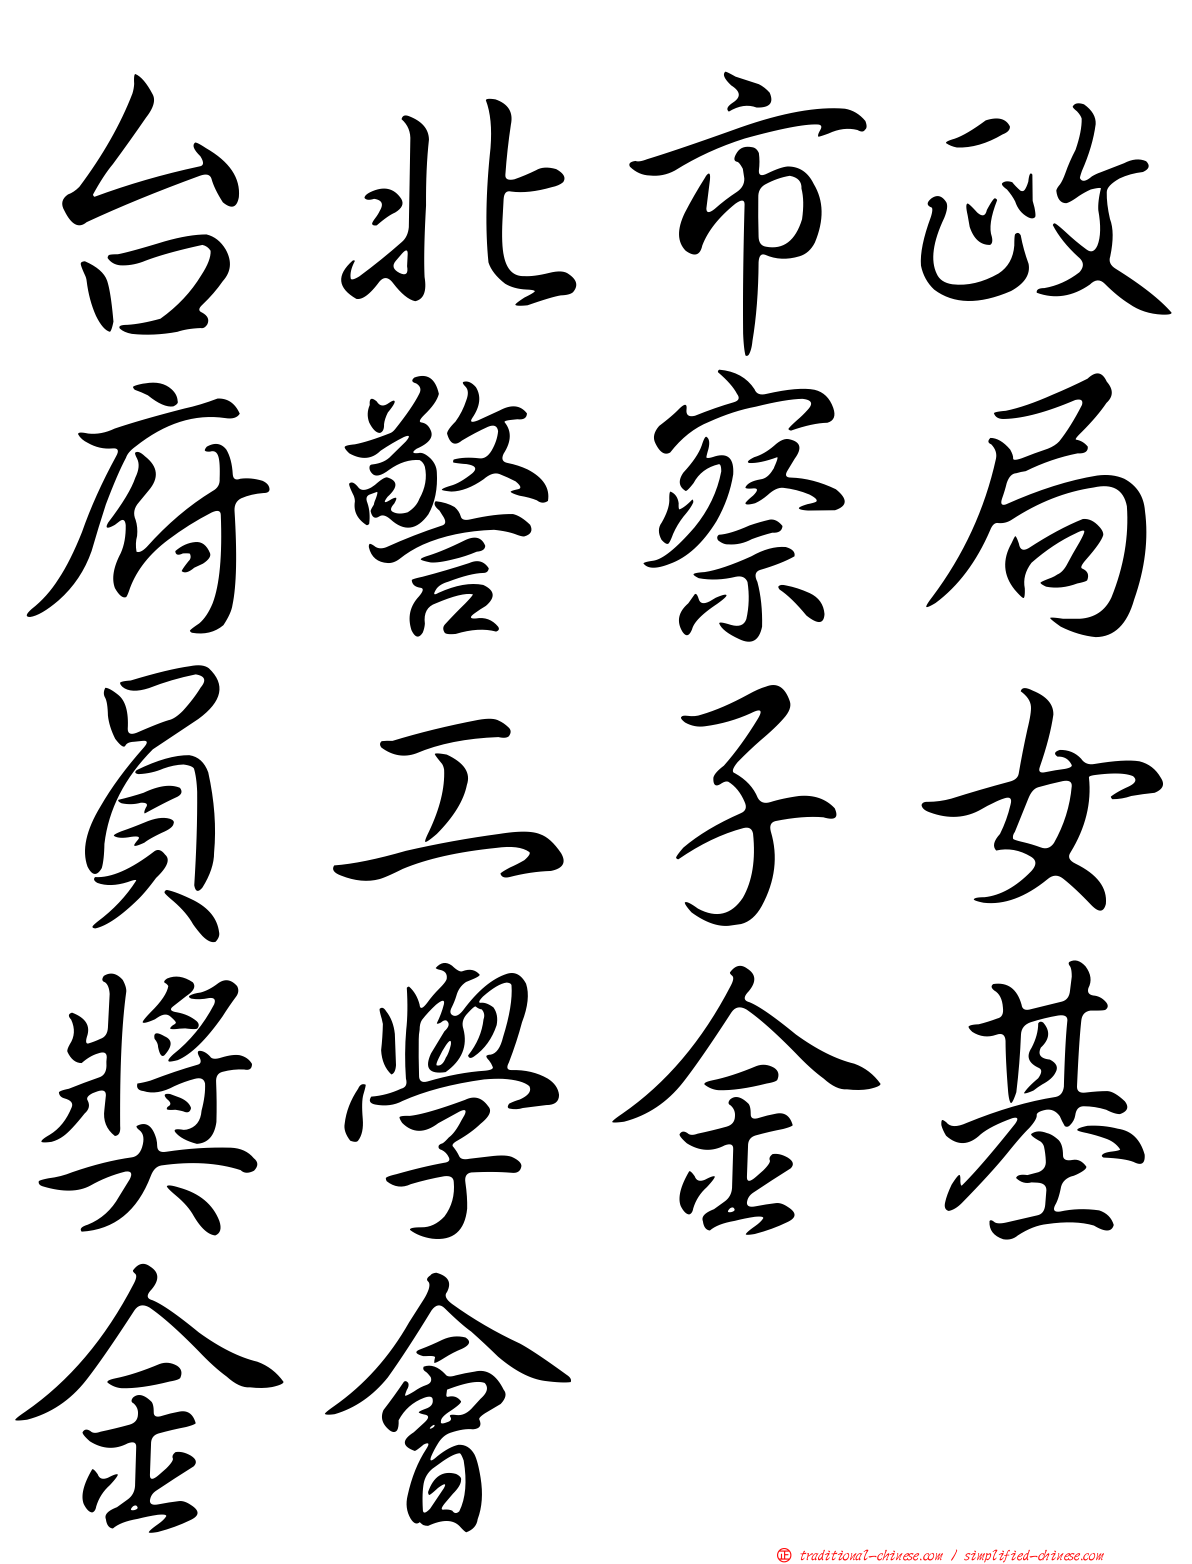 台北市政
府警察局
員工子女
獎學金基
金會
正 traditional-chinese.com / simplified-chinese.com